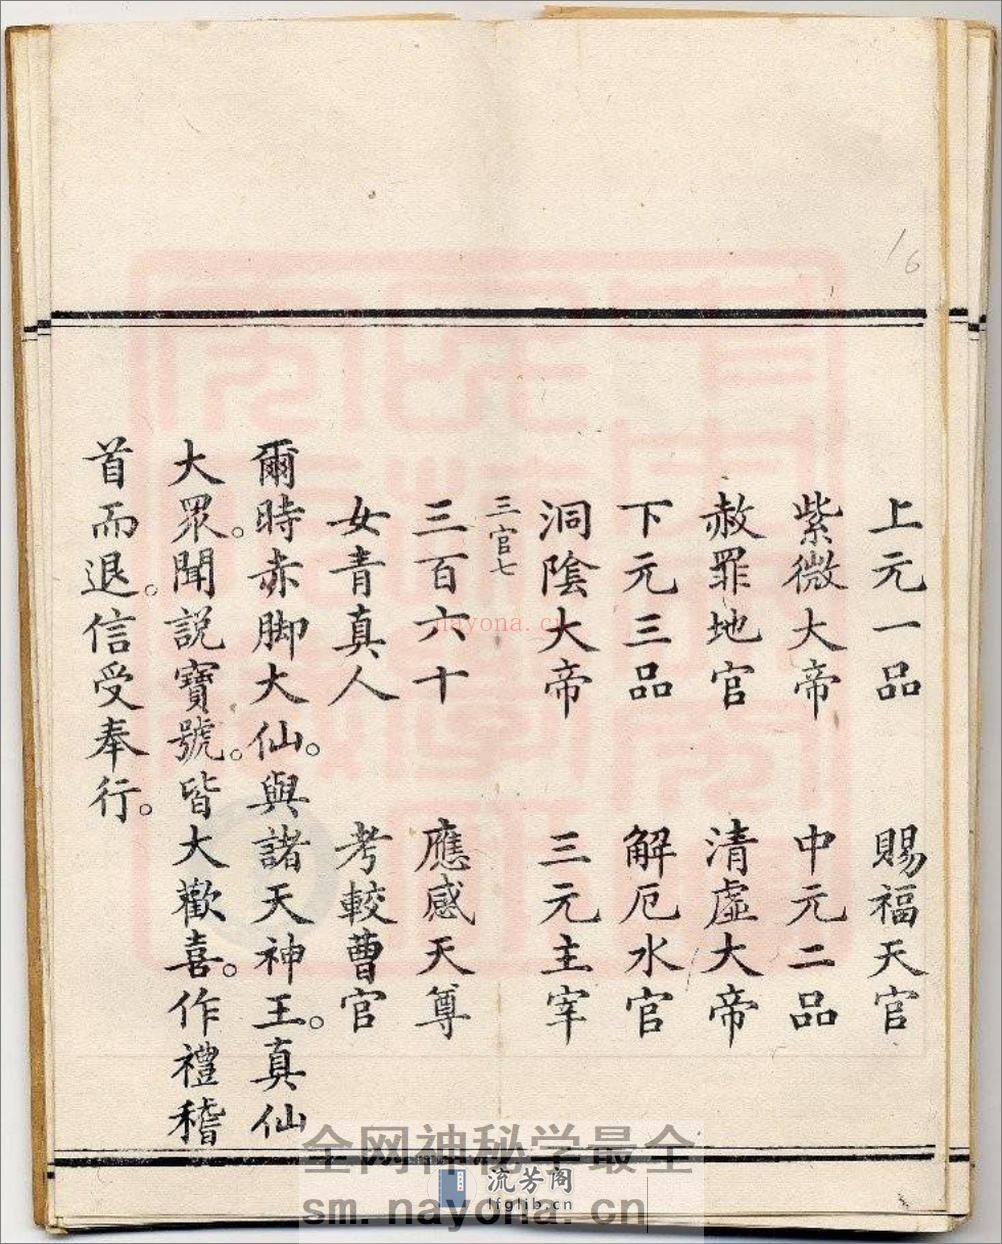 16
上元一品　賜福天官
紫微大帝　中元二品
赦罪地官　清虛大帝
下元三品　解厄水官
洞陰大帝　三元主宰
三官七
三百六十　應感天尊
女青真人　考較曹官
爾時赤脚大仙。與諸天神王。真仙
大眾。聞説寶號。皆大歡喜。作禮稽
首而退。信受奉行。
nayona.cn
全网神秘学最全
流芳阁
lfglib.cn
sm.nayona.cn